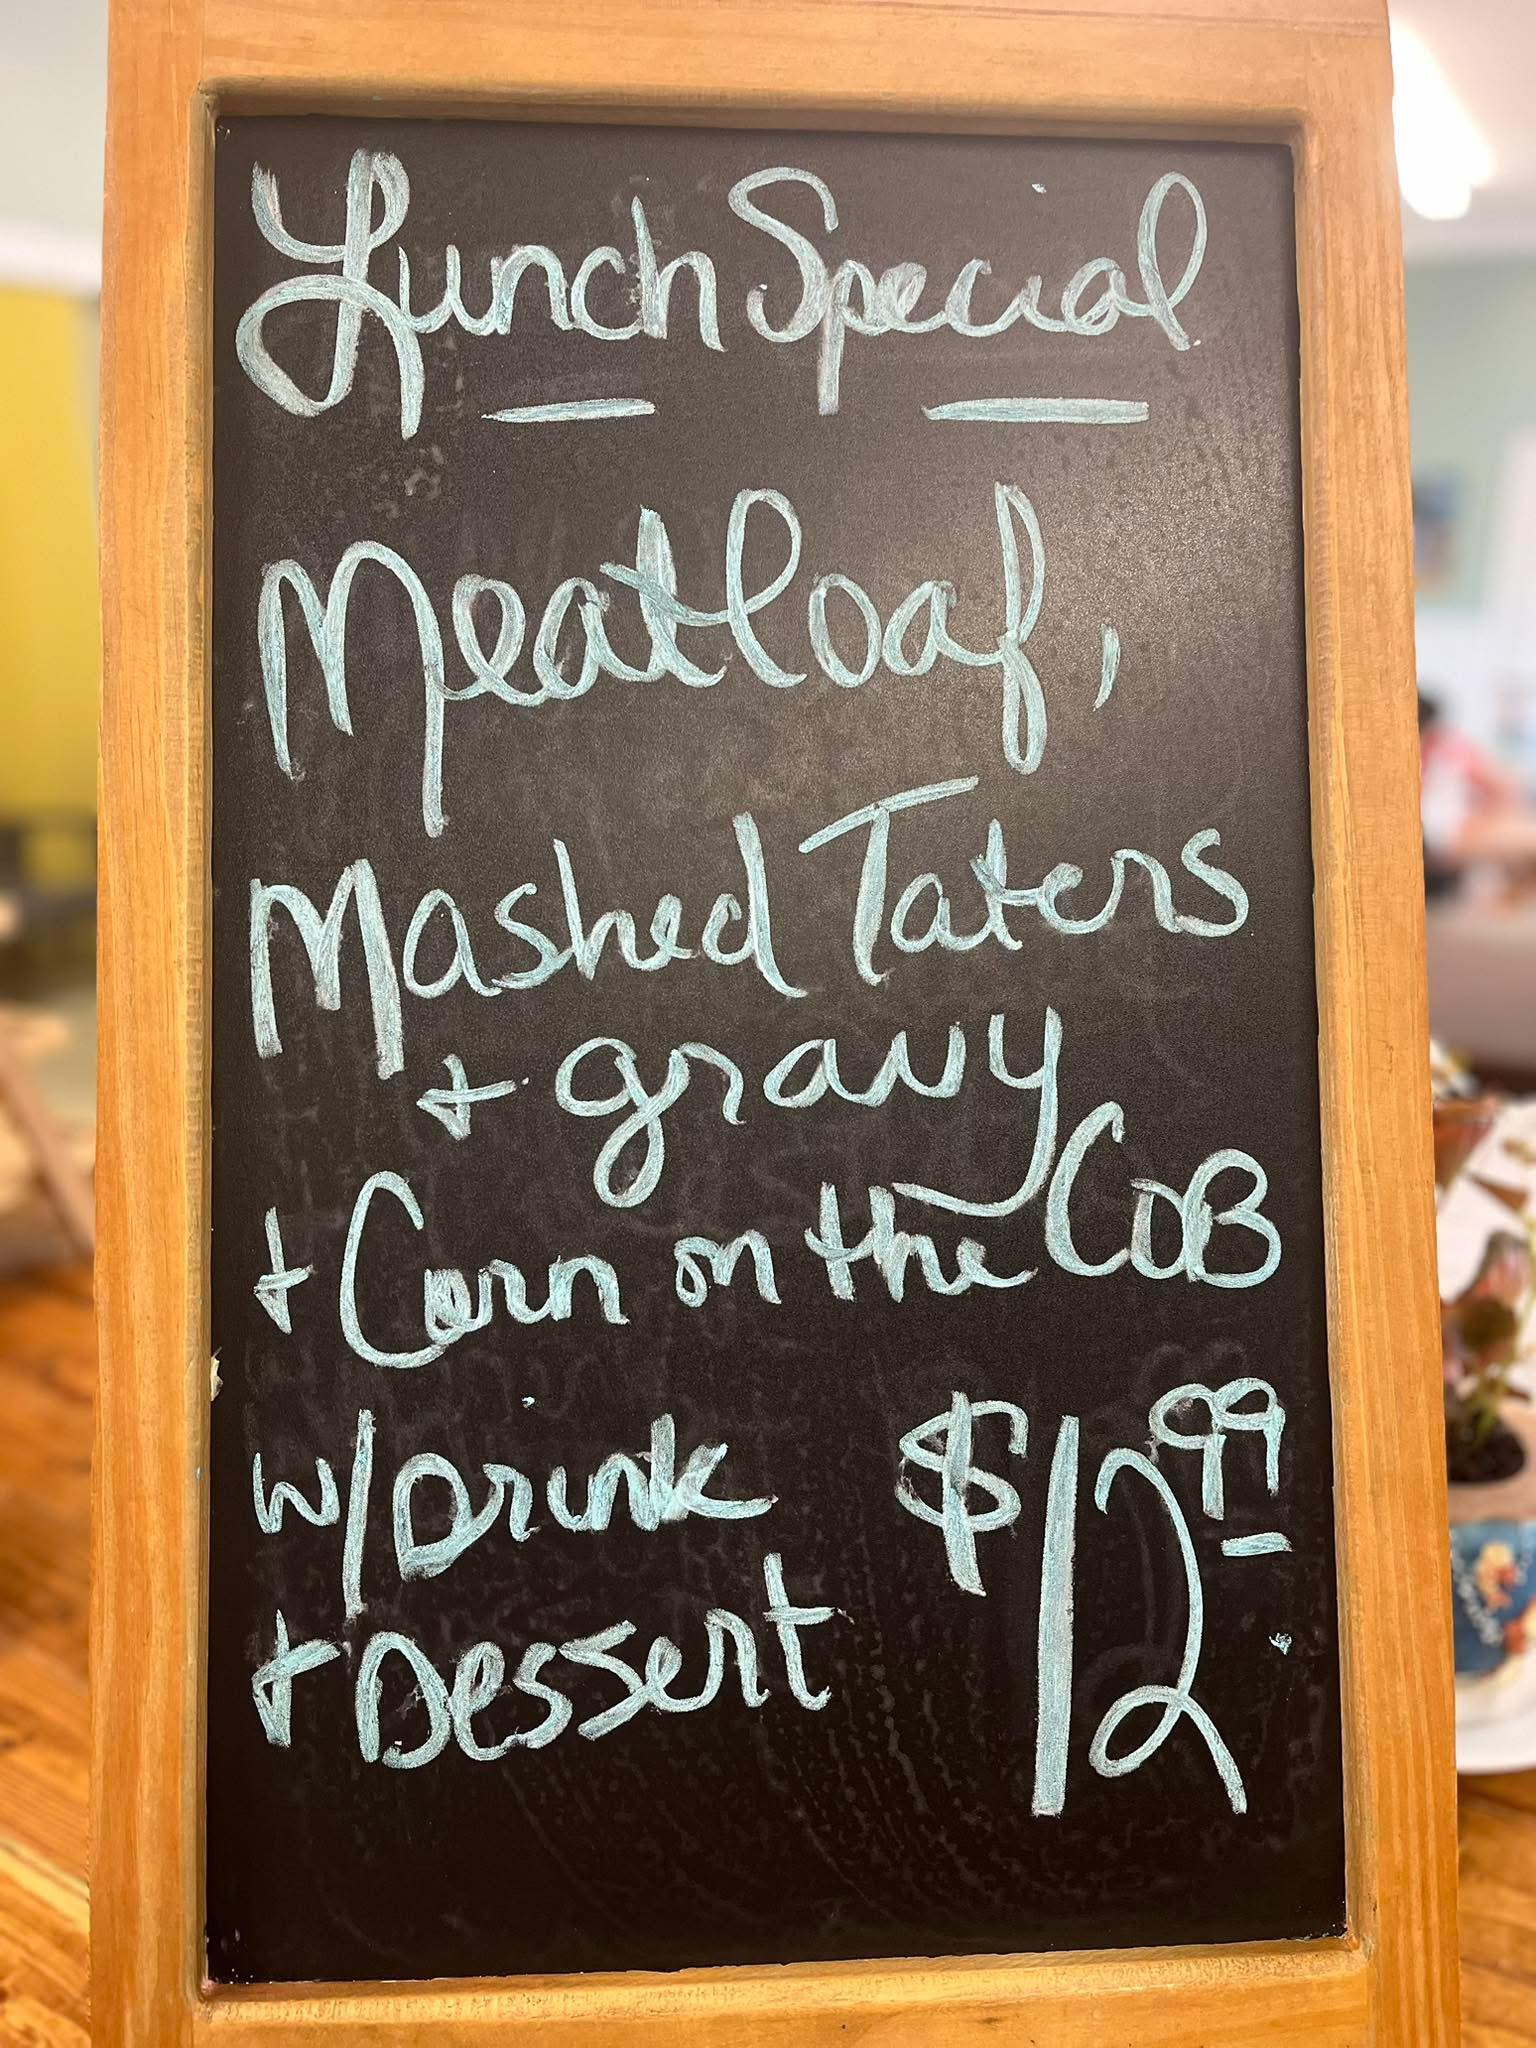 Lunch Special
Meatloaf,
Mashed Taters
+ gravy
+ Corn on the COB
w/Drink $12.99
+ Dessert